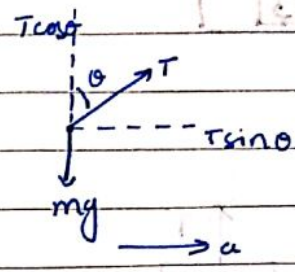 Tcosθ
θ
T
Tsinθ
mg
a